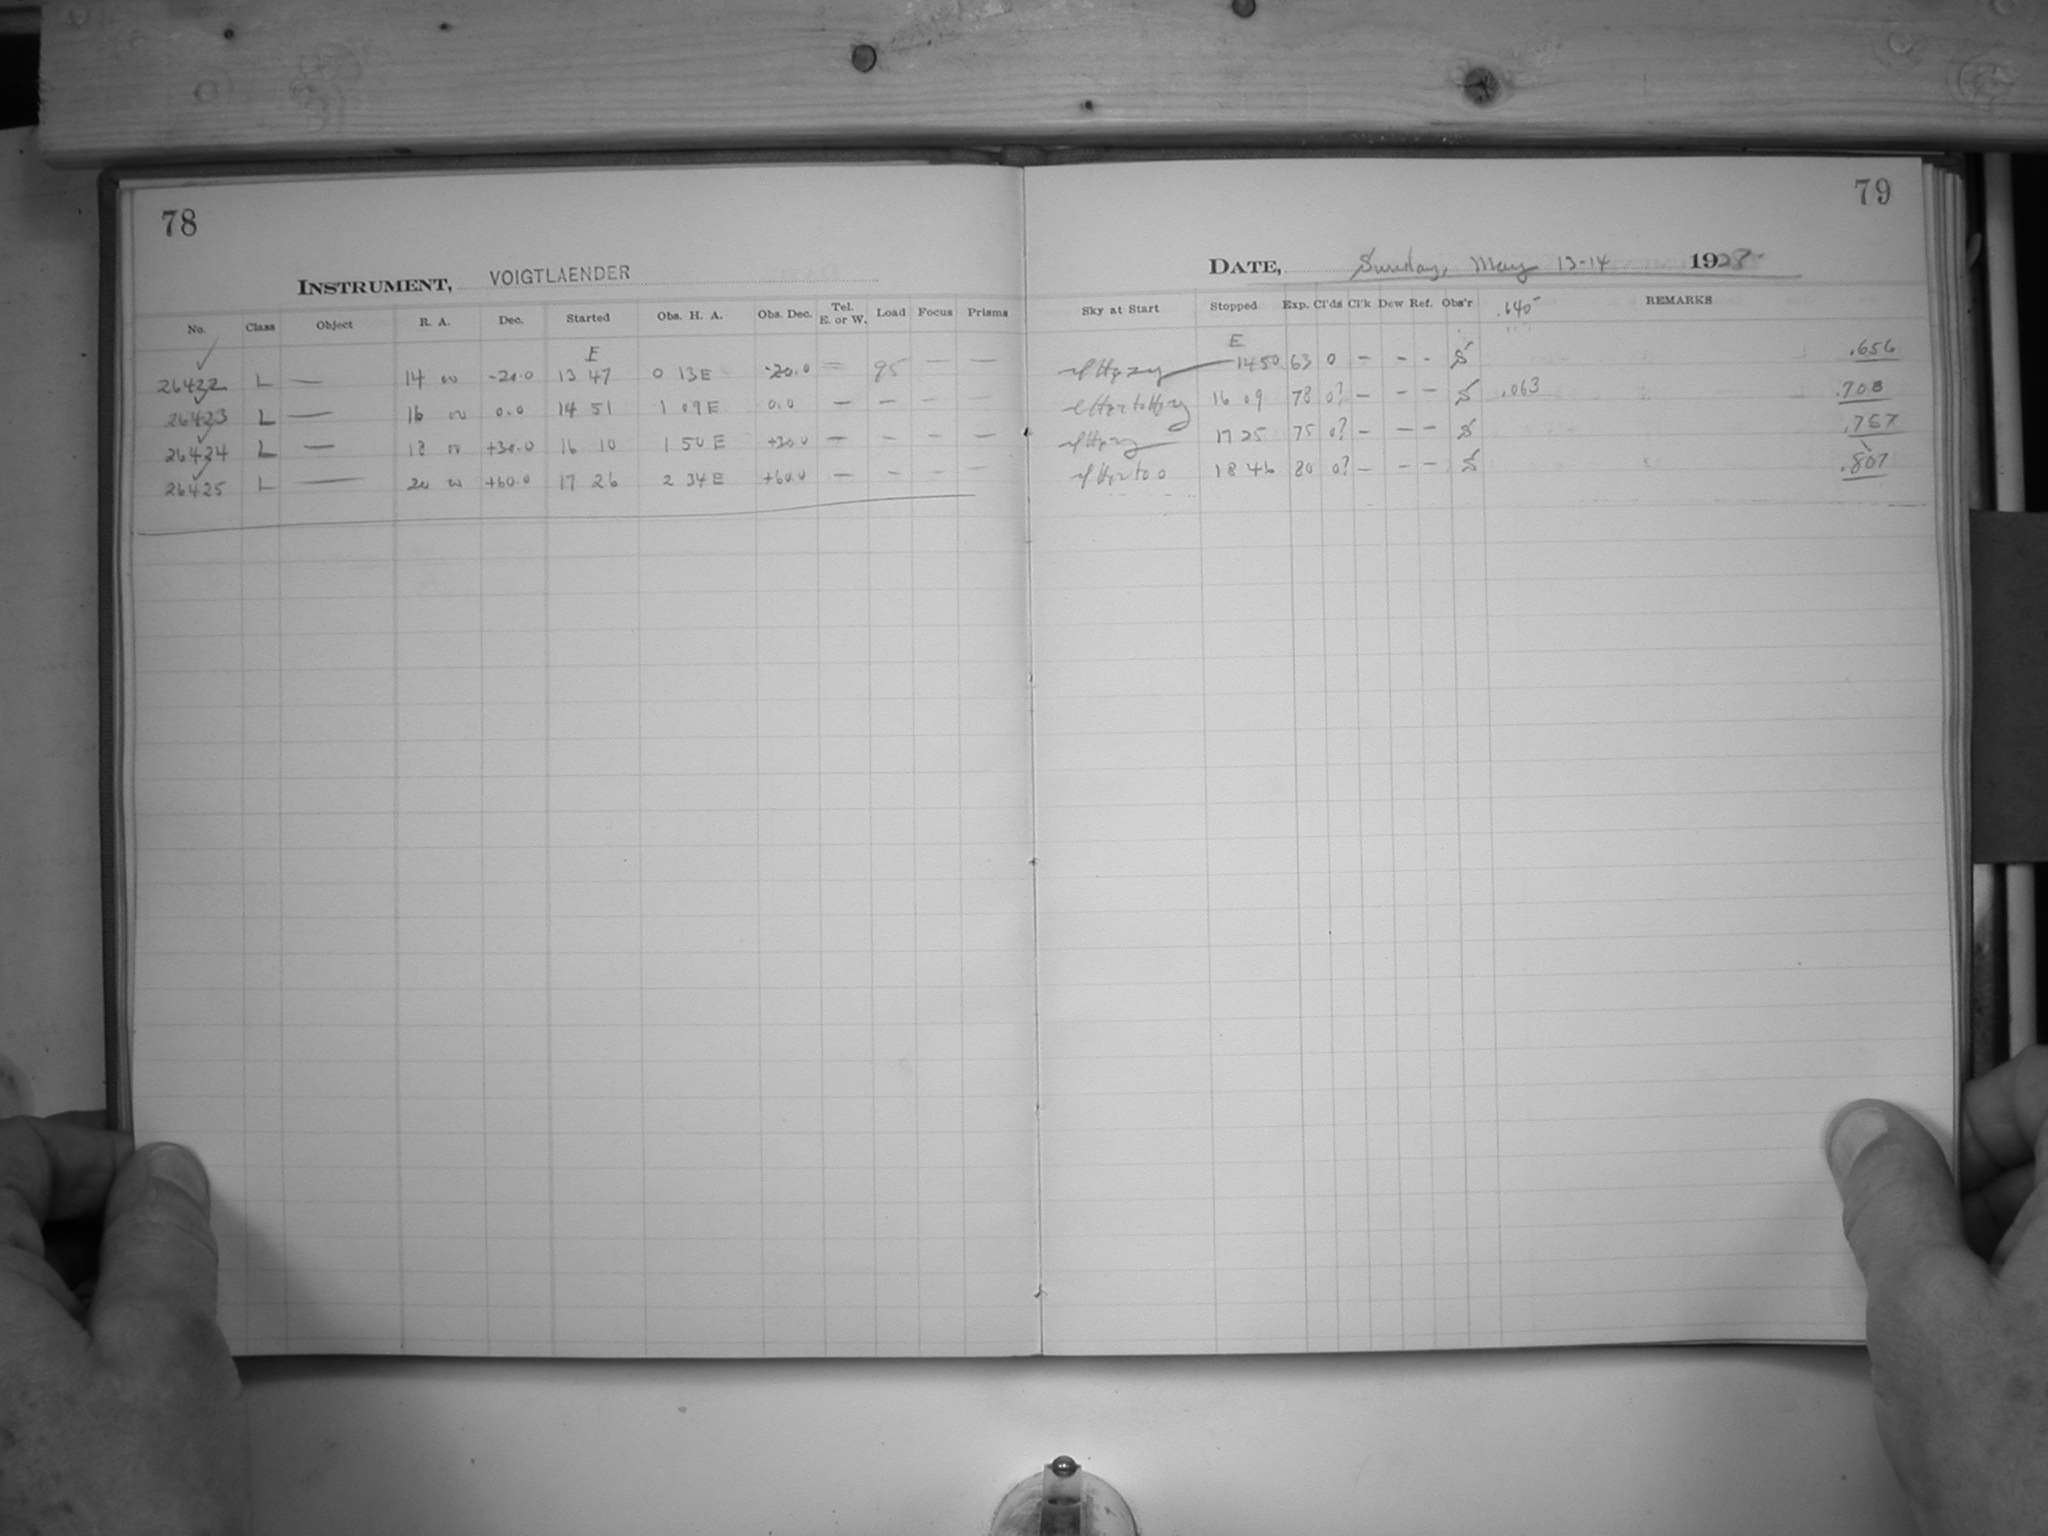 78
INSTRUMENT, VOIGTLAENDER
No. Class Object R. A. Dec. Started Obs. H. A. Obs. Dec. Tel. E. or W. Load Focus Prisms
E
26422 L — 14 00 -20.0 13 47 0 13 E -20.0 = 95 — —
26423 L — 16 00 0.0 14 51 1 09 E 0.0 — — — —
26424 L — 18 00 +30.0 16 10 1 50 E +30.0 — — — —
26425 L — 20 00 +60.0 17 26 2 34 E +60.0 — — — —
79
DATE, Sunday, May 13-14 1928
Sky at Start Stopped Exp. Cl'ds Cl'k Dew Ref. Obs'r .640 REMARKS
E
1450 63 0 — — - .656
16 09 78 0? — — — .063 .708
17 25 75 0? — — — .757
18 46 80 0? — — — .807